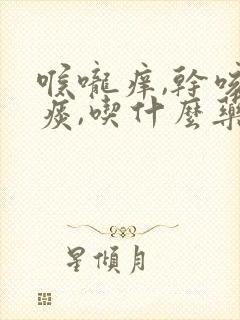 喉嚨痒,幹咳
痰,喫什麼藥
星傾月